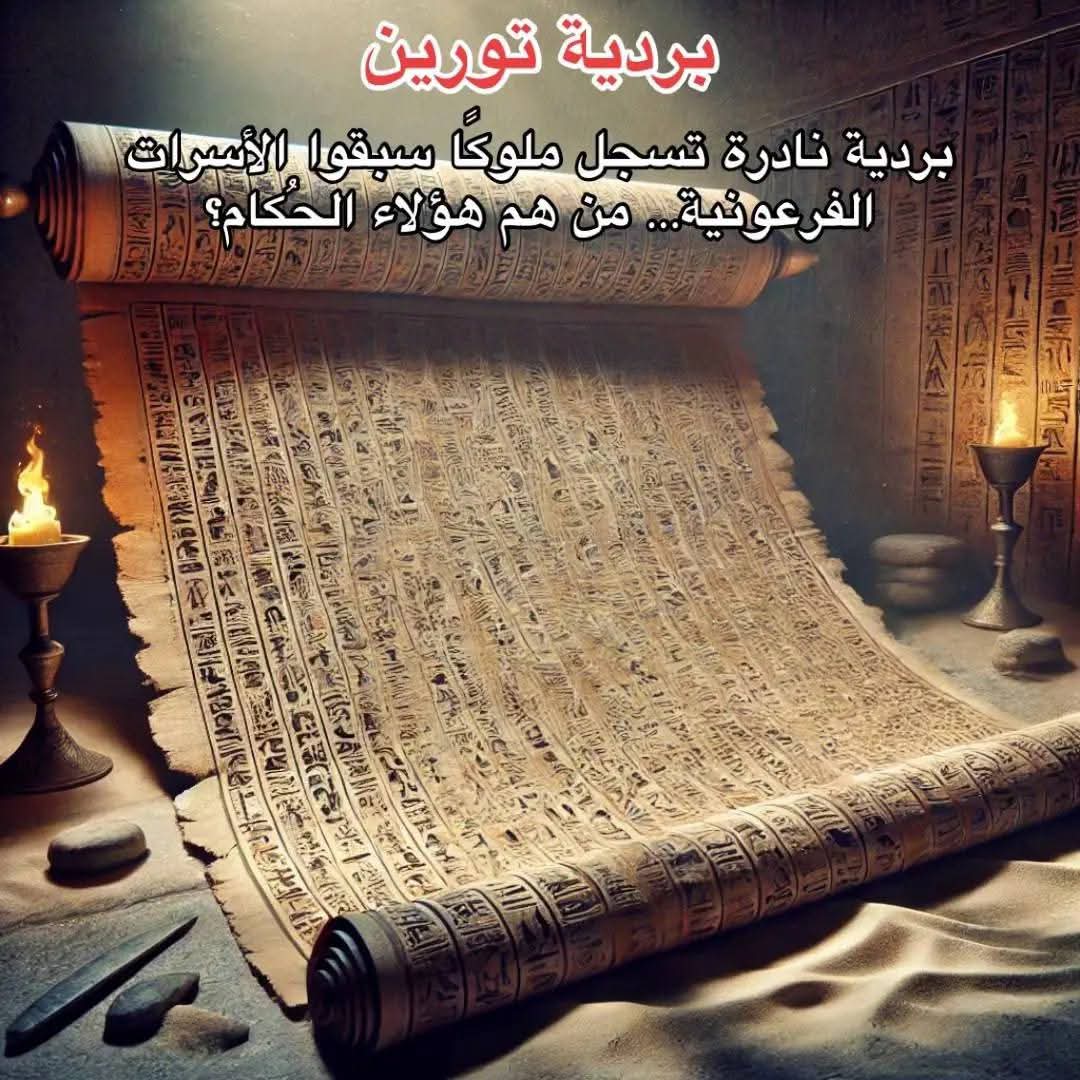 بردية تورين
بردية نادرة تسجل ملوكًا سبقوا الأسرات
الفرعونية... من هم هؤلاء الحُكام؟